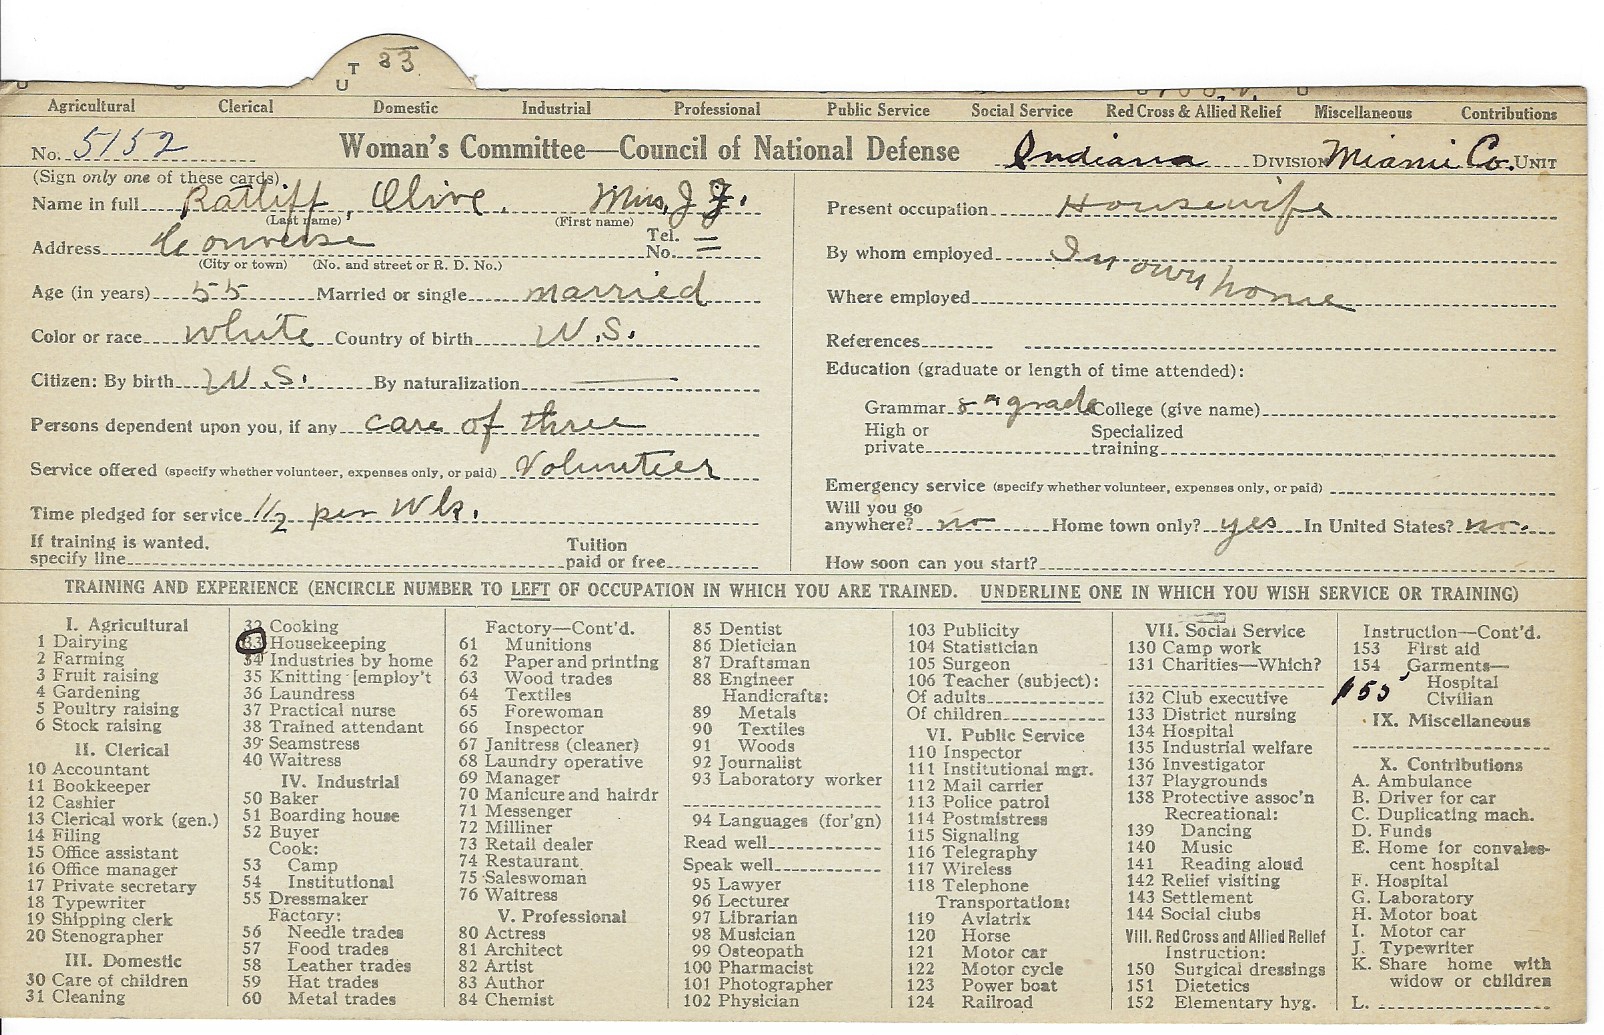 UT 33
Agricultural Clerical Domestic Industrial Professional Public Service Social Service Red Cross & Allied Relief Miscellaneous Contributions
No. 5152 Woman's Committee—Council of National Defense Indiana DIVISION Miami Co. UNIT
(Sign only one of these cards)
Name in full Ratliff, Olive. Mrs. J. F.
(Last name) (First name)
Address Converse Tel. No. —
(City or town) (No. and street or R. D. No.)
Age (in years) 55 Married or single married
Color or race white Country of birth U.S.
Citizen: By birth U.S. By naturalization
Persons dependent upon you, if any care of three
Service offered (specify whether volunteer, expenses only, or paid) Volunteer
Time pledged for service 1/2 per Wk.
If training is wanted, specify line Tuition paid or free
Present occupation Housewife
By whom employed In own home
Where employed
References
Education (graduate or length of time attended):
Grammar 8th grade College (give name)
High or private Specialized training
Emergency service (specify whether volunteer, expenses only, or paid)
Will you go anywhere? no Home town only? yes In United States? no.
How soon can you start?
TRAINING AND EXPERIENCE (ENCIRCLE NUMBER TO LEFT OF OCCUPATION IN WHICH YOU ARE TRAINED. UNDERLINE ONE IN WHICH YOU WISH SERVICE OR TRAINING)
I. Agricultural
1 Dairying
2 Farming
3 Fruit raising
4 Gardening
5 Poultry raising
6 Stock raising
II. Clerical
10 Accountant
11 Bookkeeper
12 Cashier
13 Clerical work (gen.)
14 Filing
15 Office assistant
16 Office manager
17 Private secretary
18 Typewriter
19 Shipping clerk
20 Stenographer
III. Domestic
30 Care of children
31 Cleaning
32 Cooking
33 Housekeeping
34 Industries by home
35 Knitting [employ't
36 Laundress
37 Practical nurse
38 Trained attendant
39 Seamstress
40 Waitress
IV. Industrial
50 Baker
51 Boarding house
52 Buyer
Cook:
53 Camp
54 Institutional
55 Dressmaker
Factory:
56 Needle trades
57 Food trades
58 Leather trades
59 Hat trades
60 Metal trades
Factory—Cont'd.
61 Munitions
62 Paper and printing
63 Wood trades
64 Textiles
65 Forewoman
66 Inspector
67 Janitress (cleaner)
68 Laundry operative
69 Manager
70 Manicure and hairdr
71 Messenger
72 Milliner
73 Retail dealer
74 Restaurant
75 Saleswoman
76 Waitress
V. Professional
80 Actress
81 Architect
82 Artist
83 Author
84 Chemist
85 Dentist
86 Dietician
87 Draftsman
88 Engineer
Handicrafts:
89 Metals
90 Textiles
91 Woods
92 Journalist
93 Laboratory worker
94 Languages (for'gn)
Read well
Speak well
95 Lawyer
96 Lecturer
97 Librarian
98 Musician
99 Osteopath
100 Pharmacist
101 Photographer
102 Physician
103 Publicity
104 Statistician
105 Surgeon
106 Teacher (subject):
Of adults
Of children
VI. Public Service
110 Inspector
111 Institutional mgr.
112 Mail carrier
113 Police patrol
114 Postmistress
115 Signaling
116 Telegraphy
117 Wireless
118 Telephone
Transportation:
119 Aviatrix
120 Horse
121 Motor car
122 Motor cycle
123 Power boat
124 Railroad
VII. Social Service
130 Camp work
131 Charities—Which?
132 Club executive
133 District nursing
134 Hospital
135 Industrial welfare
136 Investigator
137 Playgrounds
138 Protective assoc'n
Recreational:
139 Dancing
140 Music
141 Reading aloud
142 Relief visiting
143 Settlement
144 Social clubs
VIII. Red Cross and Allied Relief
Instruction:
150 Surgical dressings
151 Dietetics
152 Elementary hyg.
Instruction—Cont'd.
153 First aid
154 Garments—
Hospital
155 Civilian
IX. Miscellaneous
X. Contributions
A. Ambulance
B. Driver for car
C. Duplicating mach.
D. Funds
E. Home for convales-
cent hospital
F. Hospital
G. Laboratory
H. Motor boat
I. Motor car
J. Typewriter
K. Share home with
widow or children
L.